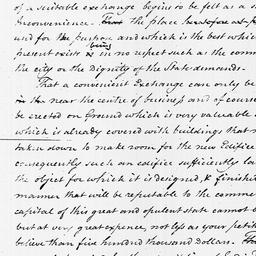 of a suitable exchange begins to be felt as a s
Inconvenience. That the place heretofore
used for the purpose and which is the best which
present exists is being in no respect such as the comm
the city or the Dignity of the State demands.
That a convenient Exchange can only be
in the near the centre of business and of course
be erected on Ground which is very valuable
which is already covered with buildings that
taken down to make room for the new Edifice
consequently such an edifice sufficiently la
the object for which it is designed, & finishe
manner that will be reputable to the comme
capital of this great and opulent state cannot
but at very great expence, not less as your petit
believe than five hundred thousand dollars.